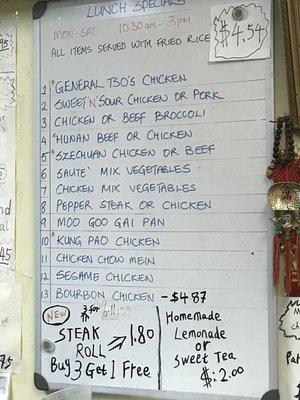 LUNCH SPECIALS
MON-SAT 10:30am - 3pm
ALL ITEMS SERVED WITH FRIED RICE
$4.54
1 *GENERAL TSO'S CHICKEN
2 SWEET 'N' SOUR CHICKEN OR PORK
3 CHICKEN OR BEEF BROCCOLI
4 *HUNAN BEEF OR CHICKEN
5 *SZECHUAN CHICKEN OR BEEF
6 SAUTE' MIX VEGETABLES
7 CHICKEN MIX VEGETABLES
8 PEPPER STEAK OR CHICKEN
9 MOO GOO GAI PAN
10 *KUNG PAO CHICKEN
11 CHICKEN CHOW MEIN
12 SESAME CHICKEN
13 BOURBON CHICKEN - $4.87
NEW
STEAK ROLL 1.80
Buy 3 Get 1 Free
Homemade
Lemonade
or
Sweet Tea
$: 2.00